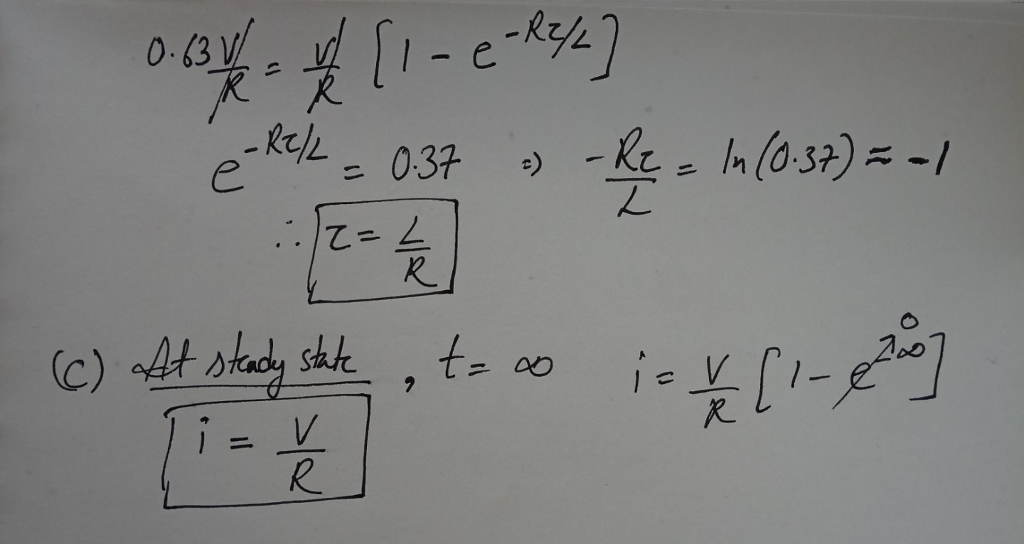 0.63 V/R = V/R [1 - e^-Rτ/L]
e^-Rτ/L = 0.37 ⇒ -Rτ/L = ln(0.37) ≈ -1
∴ τ = L/R
(c) At steady state, t = ∞ i = V/R [1 - e^-∞ 0]
i = V/R